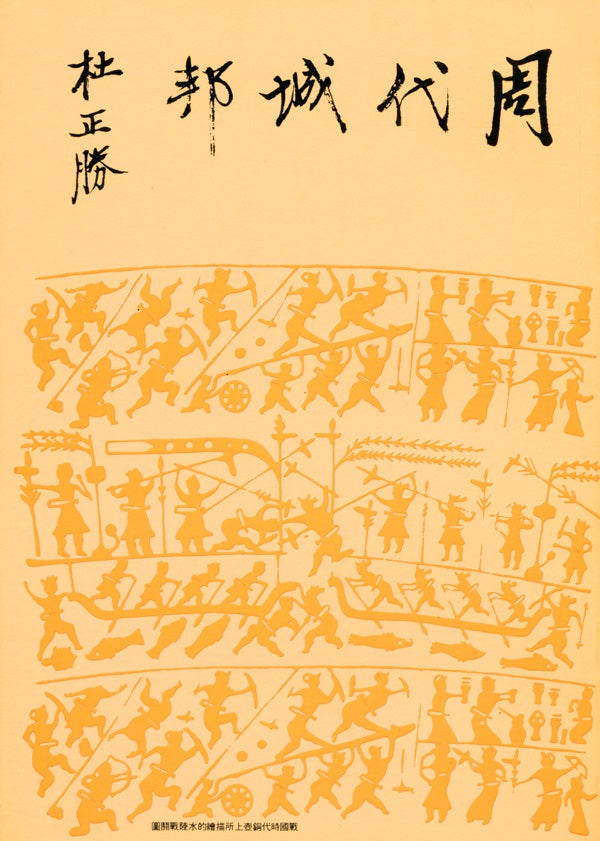 周代城邦
杜正勝
戰國時代銅壺上所描繪的水陸戰鬪圖